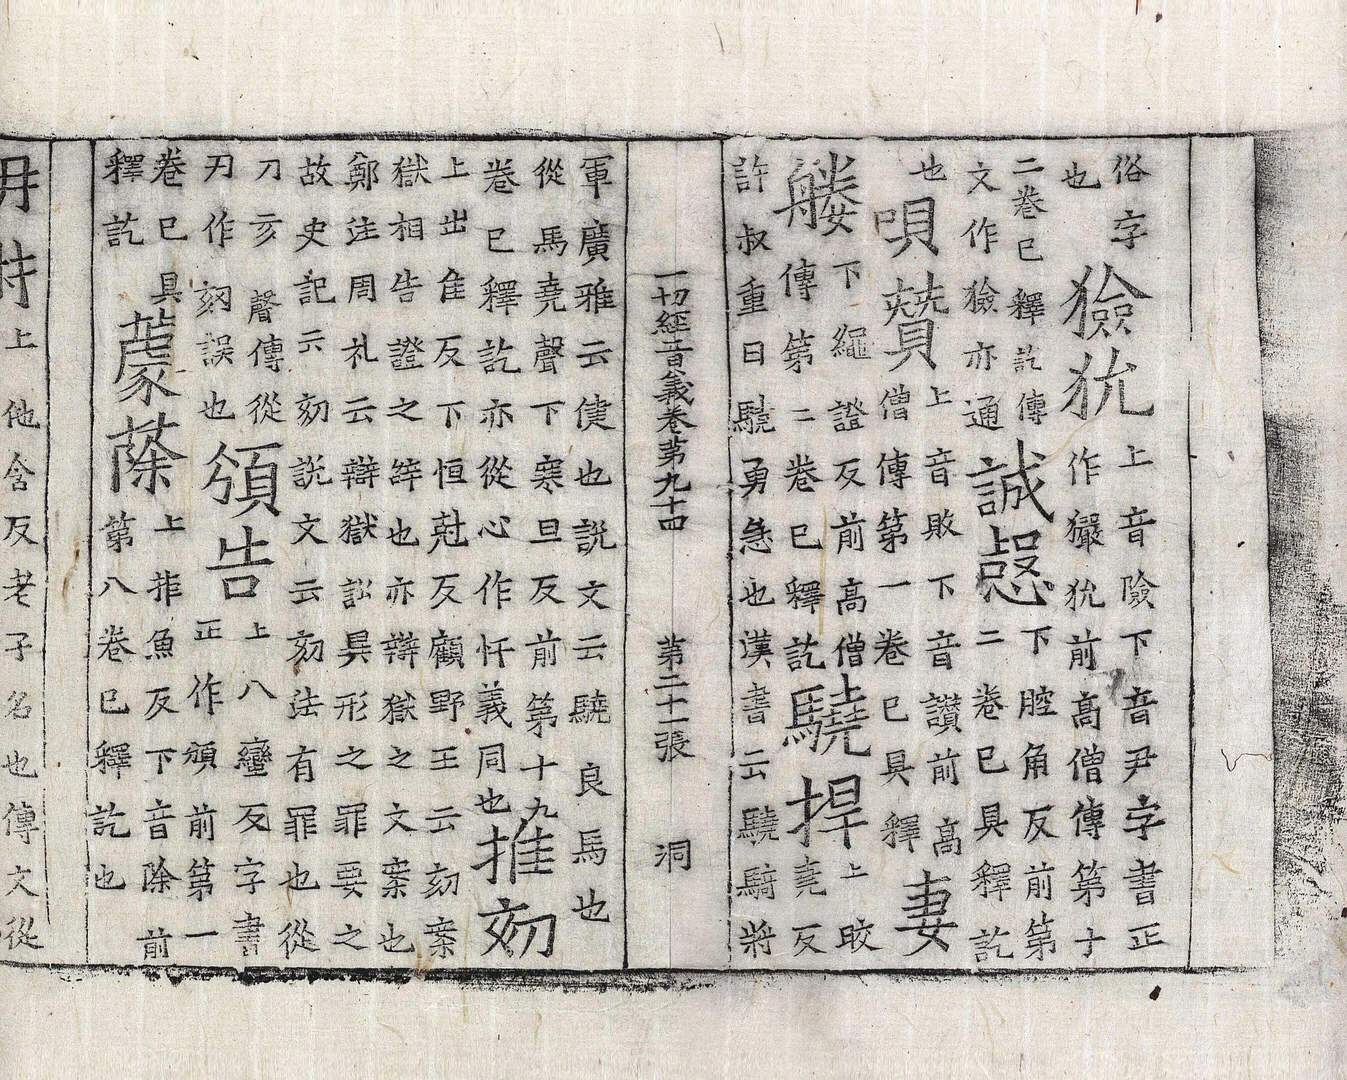 俗字
也
獫狁
上音險下音尹字書正
作玁狁前高僧傳第十
二卷已釋訖傳
文作獫亦通
誠愨
下腔角反前第
二卷已具釋訖
也
唄讚
上音敗下音讃前高
僧傳第一卷已具釋
妻
媵
下繩證反前高僧
傳第二卷已釋訖
驍捍
上晈
堯反
許叔重曰驍勇急也漢書云驍騎將
一切經音義卷第九十四 第二十一張 洞
軍廣雅云健也説文云驍良馬也
從馬堯聲下寒旦反前第十九
卷已釋訖亦從心作忓義同也
推劾
上出隹反下恒尅反顧野王云劾案
獄相告證之辤也亦辯獄之文案也
鄭注周礼云辯獄訟具形之罪要之
故史記云劾説文云劾法有罪也從
刀亥聲傳從
刃作刻誤也
頒告
上八蠻反字書
正作頒前第一
卷已具
釋訖
蘧蒢
上菲魚反下音除前
第八卷已釋訖也
上他含反老子名也傳文從